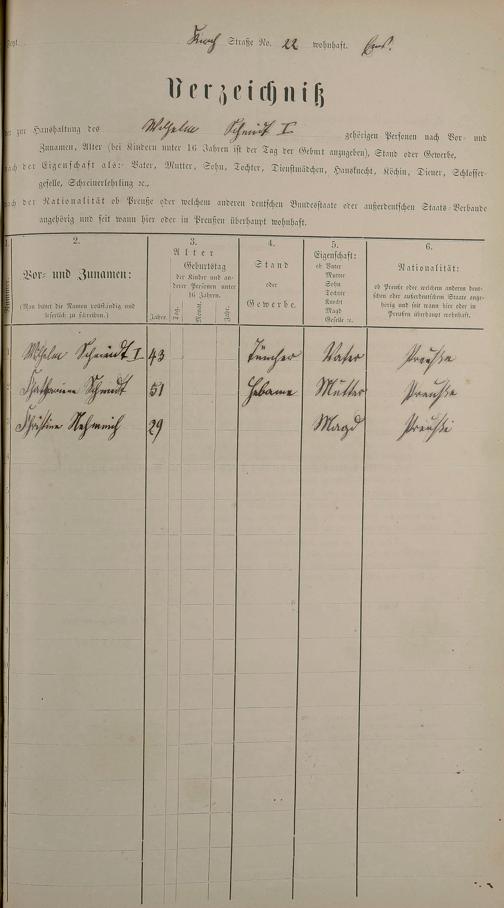 Straße No. 22 wohnhaft. Ems.
Verzeichniß
der zur Haushaltung des Wilhelm Schmidt I. gehörigen Personen nach Vor- und
Zunamen, Alter (bei Kindern unter 16 Jahren ist der Tag der Geburt anzugeben), Stand oder Gewerbe,
nach der Eigenschaft als: Vater, Mutter, Sohn, Tochter, Dienstmädchen, Hausknecht, Köchin, Diener, Schlosser-
geselle, Schreinerlehrling ꝛc.,
nach der Nationalität ob Preuße oder welchem anderen deutschen Bundesstaate oder außerdeutschen Staats-Verbande
angehörig und seit wann hier oder in Preußen überhaupt wohnhaft.
1. 2. 3. 4. 5. 6.
Nummer.
Vor- und Zunamen:
(Man bittet die Namen vollständig und
leserlich zu schreiben.)
Alter
Geburtstag
der Kinder und an-
derer Personen unter
16 Jahren.
Jahre. Tag. Monat. Jahr.
Stand
oder
Gewerbe.
Eigenschaft:
ob Vater
Mutter
Sohn
Tochter
Knecht
Magd
Geselle ꝛc.
Nationalität:
ob Preuße oder welchem anderen deut-
schen oder außerdeutschen Staate ange-
hörig und seit wann hier oder in
Preußen überhaupt wohnhaft.
Wilhelm Schmidt I 43 Tüncher Vater Preuße
Katharine Schmidt 51 Hebame Mutter Preuße
Christine 29 Magd Preuße